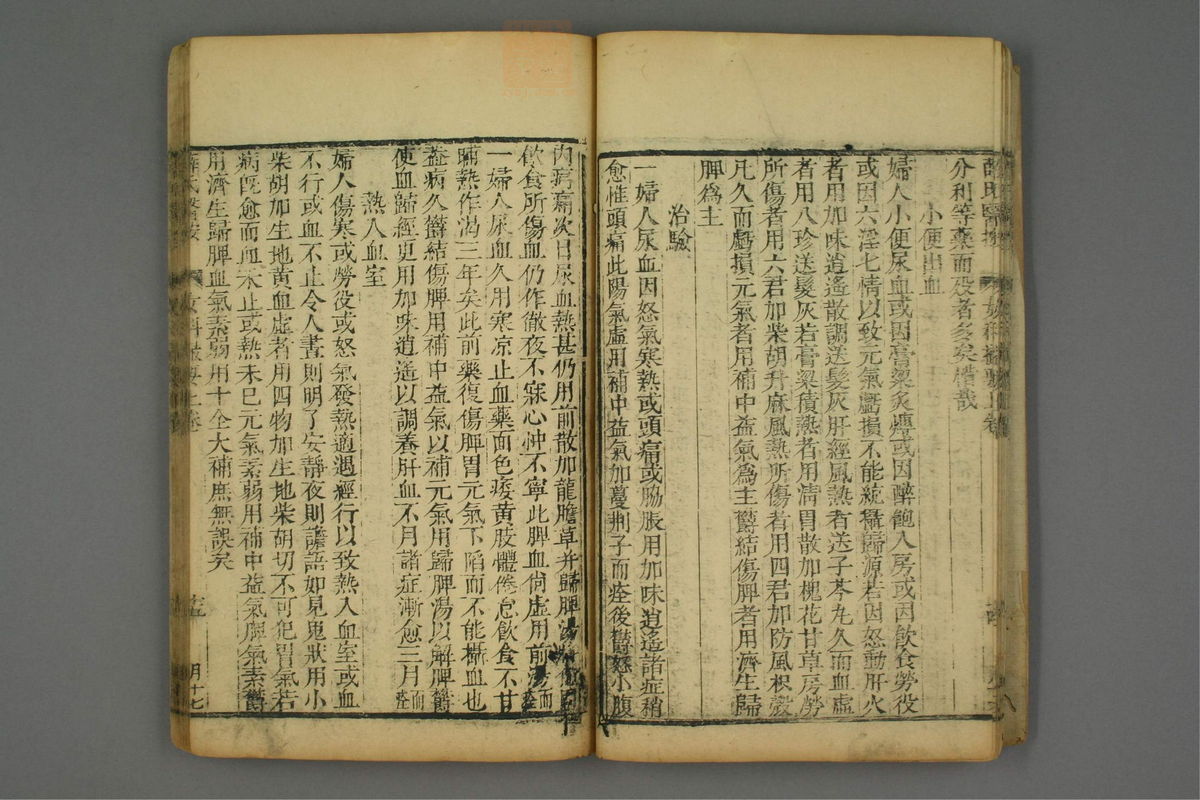 薛氏醫按 女科撮要上卷
分利等藥而歿者多矣惜哉
小便出血
婦人小便尿血或因膏粱炙煿或因醉飽入房或因飲食勞役
或因六淫七情以致元氣虧損不能統攝歸源若因怒動肝火
者用加味逍遙散調送髮灰肝經風熱者送子芩丸久而血虛
者用八珍送髮灰若膏粱積熱者用清胃散加槐花甘草房勞
所傷者用六君加柴胡升麻風熱所傷者用四君加防風枳殼
凡久而虧損元氣者用補中益氣為主欝結傷脾者用濟生歸
脾為主
治驗
一婦人尿血因怒氣寒熱或頭痛或脇脹用加味逍遙諸症稍
愈惟頭痛此陽氣虛用補中益氣加蔓荆子而痊後欝怒小腹
內疼痛次日尿血熱甚仍用前散加龍膽草并歸脾湯
飲食所傷血仍作徹夜不寐心忡不寧此脾血尚虛用前湯而痊
一婦人尿血久用寒凉止血藥面色痿黃肢體倦怠飲食不甘
晡熱作渴三年矣此前藥復傷脾胃元氣下陷而不能攝血也
蓋病久欝結傷脾用補中益氣以補元氣用歸脾湯以解脾欝
使血歸經更用加味逍遙以調養肝血不月諸症漸愈三月而痊
熱入血室
婦人傷寒或勞役或怒氣發熱適遇經行以致熱入血室或血
不行或血不止令人晝則明了安靜夜則譫語如見鬼狀用小
柴胡加生地黃血虛者用四物加生地柴胡切不可犯胃氣若
病既愈而血未止或熱未已元氣素弱用補中益氣脾氣素欝
用濟生歸脾血氣素弱用十全大補庶無誤矣
薛氏醫按 女科撮要上卷 月十七